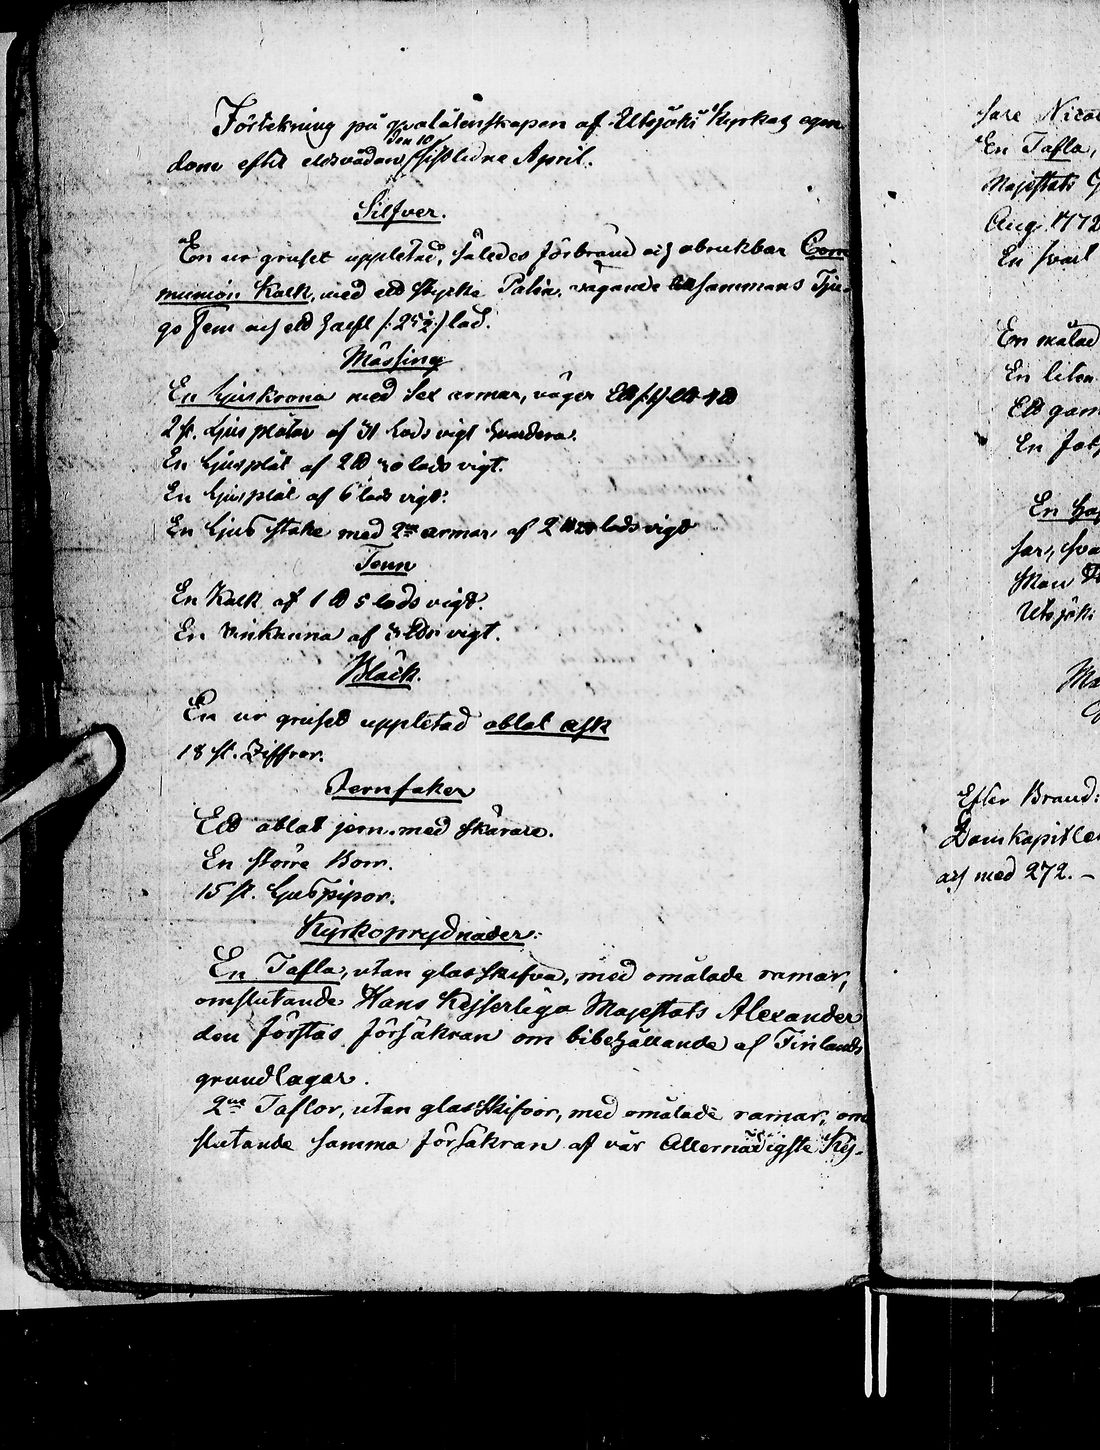 Förtekning på qvalåtenskapen af Utsjöki Kyrkas egen-
dom efter eldsvådan den 10 sistledne April.
Silfver.
En ur gruset uppletad, således förbränd och obrukbar Com-
munion Kalk, med ett stycke Patén, vägande tillsammans Tju-
go fem och ett halft /: 25 ½ :/ lod.
Mässing
En Ljuskrona med Sex armar, väger
2 st. Ljusplåtar af 31 Lods vigt hvardera.
En Ljusplåt af 2 ℔ 30 lods vigt.
En Ljusplåt af 6 lods vigt.
En Ljus stake med 2ne armar, af 2 ℔ lods vigt
Tenn
En Kalk af 1 ℔ 5 lods vigt.
En Vinkanna af 3 ℔s vigt.
Bläck.
En ur gruset uppletad oblat ask
18 st. Ziffror.
Jernsaker
Ett oblat jern med skärare.
En större Borr.
15 st. Ljuspipor.
Kyrkoprydnader:
En Tafla, utan glas skifva, med omålade ramar,
omslutande Hans Kejserliga Majestäts Alexander
den förstas försäkran om bibehållande af Finlands
grundlagar.
2ne Taflor, utan glas skifvor, med omålade ramar, om
slutande samma försäkran af vår Allernådigste Kej-
sare Nicol
En Tafla,
Majestäts G
Aug. 1772
En svart
En målad
En liten
Ett gam
En
En
sar, sva
Man
Utsjöki
Ma
Efter Brand:
Domkapitle
och med 272. –